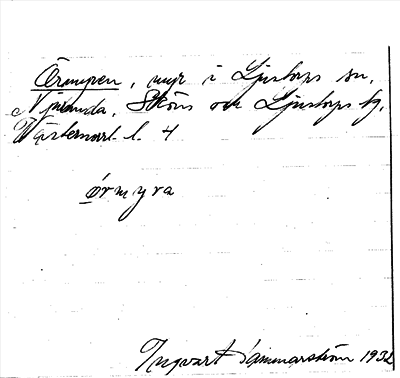 Örmyren, myr i Ljustorps sn,
Njurunda, Sköns och Ljustorps tg,
Västernorrl. l. 4
örmyra
Ingvart Hammarström 1932